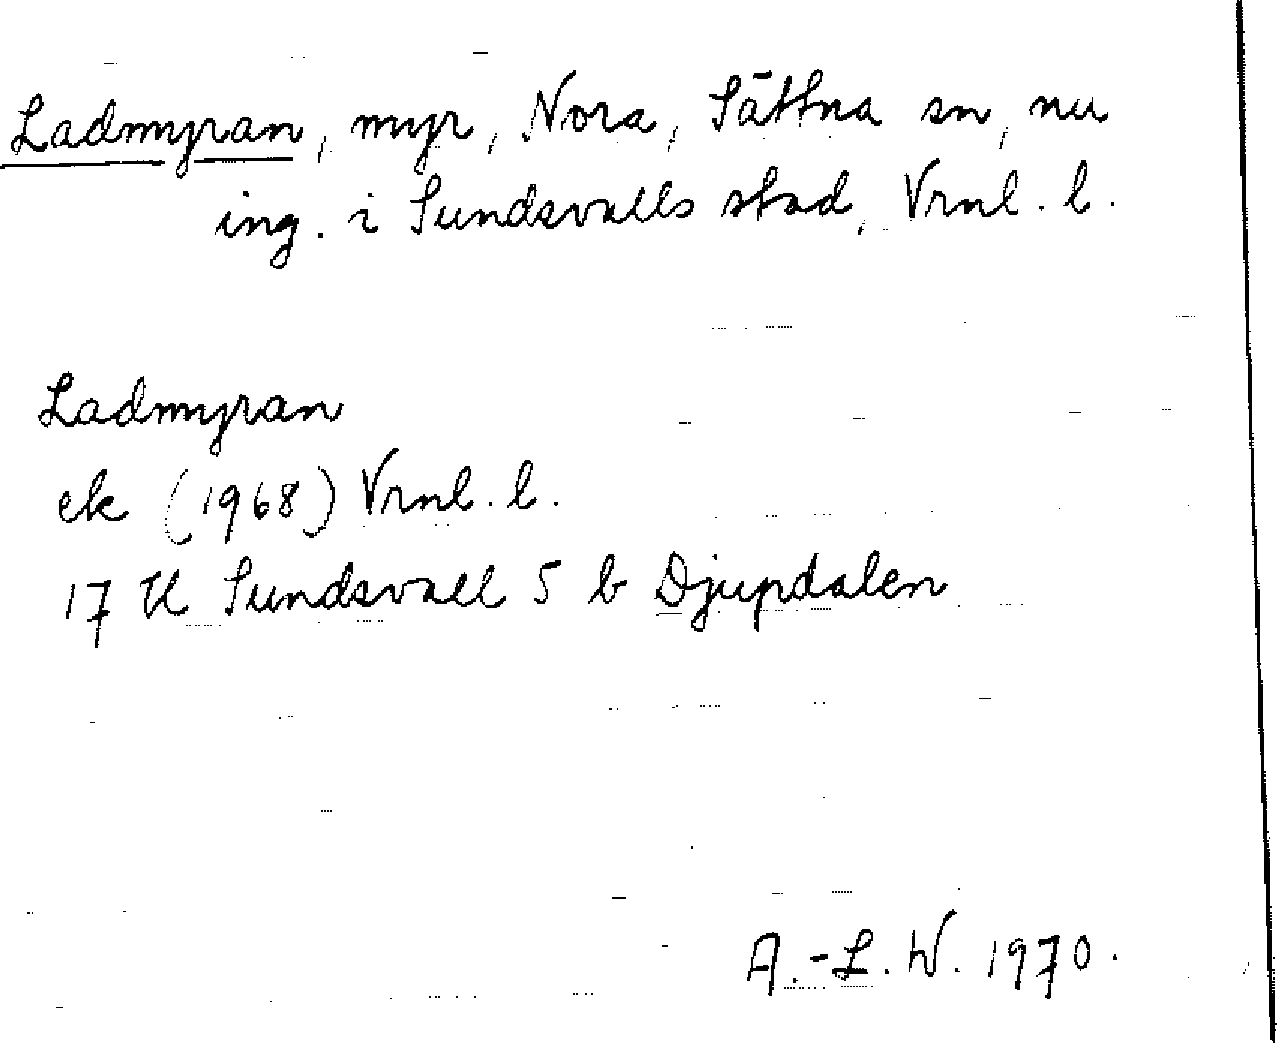 Ladmyran, myr, Nora, Sättna sn, nu
ing. i Sundsvalls stad, Vrnl. l.
Ladmyran
ek (1968) Vrnl. l.
17 H Sundsvall 5 b Djupdalen
A.-L. W. 1970.